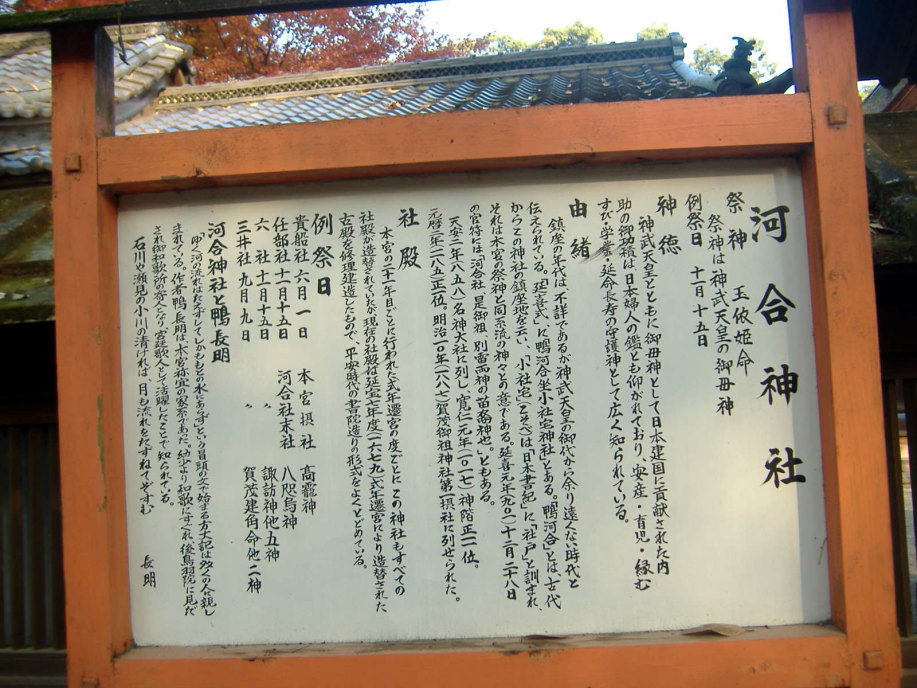 河合神社
祭神 玉依姫命
祭神は神武天皇の御母神
例祭日 十一月十五日
神徳
神武天皇とともに御母神として日本建国に貢献された内
助の御功績は日本婦人の鑑とも仰がれており、安産・育児・縁む
すび・学業・延命長寿の守護神として広く知られている。
由緒
鎮座の年代は、不詳であるが神武天皇の御代から余り遠くない時代と
伝えられている。「延喜式」に「鴨河合坐小社宅神社」とある。「鴨河合」とは古代
からこの神社の鎮座地をいい、「小社宅」(こそべ)は「日本書紀」に「社戸」と訓まれ、
それは本宮の祭神と同系流の神々との意である。延喜元年(九〇一)十二月二十八日
の官符には、「河合社是御祖別雷両神の苗裔神也」とある。
天安二年(八五八)名神大社に列し、寛仁元年(一〇一七)神階正二位。
元暦二年(一一八五)正一位。明治一〇年(一八七七)賀茂御祖神社第一摂社に列せられた。
社殿
本宮の二十一年目ごとに行われた式年遷宮の度ごとにこの神社もすべての
社殿が造替されていたが、現在の社殿は延宝七年度(一六七九)式年遷宮により造替された
古殿を修理建造したもので、平安時代の書院造りの形式をよくとどめている。
例祭日
貴船社 六月一日 本宮摂社 高龗神
任部社 十一月十五日 河合社末社 八咫烏神
六社 十一月十五日 〃 諏訪神他五神
三井社 九月九日 〃 賀茂建角命他二神
河合神社と鴨長明
「ゆく河の流れはたえずしてしかももとの水にあらず」という冒頭の文で始まる方丈記は多くの人に親し
まれている。作者・鴨長明は、本宮禰宜の家系であった。幼少より和歌にすぐれ、後鳥羽院に見だ
され御和歌所の寄人となり、宮廷歌人として活躍したことで知られている。
石川や瀬見の小川の清ければ、月も流れをたずねてぞすむ 長明